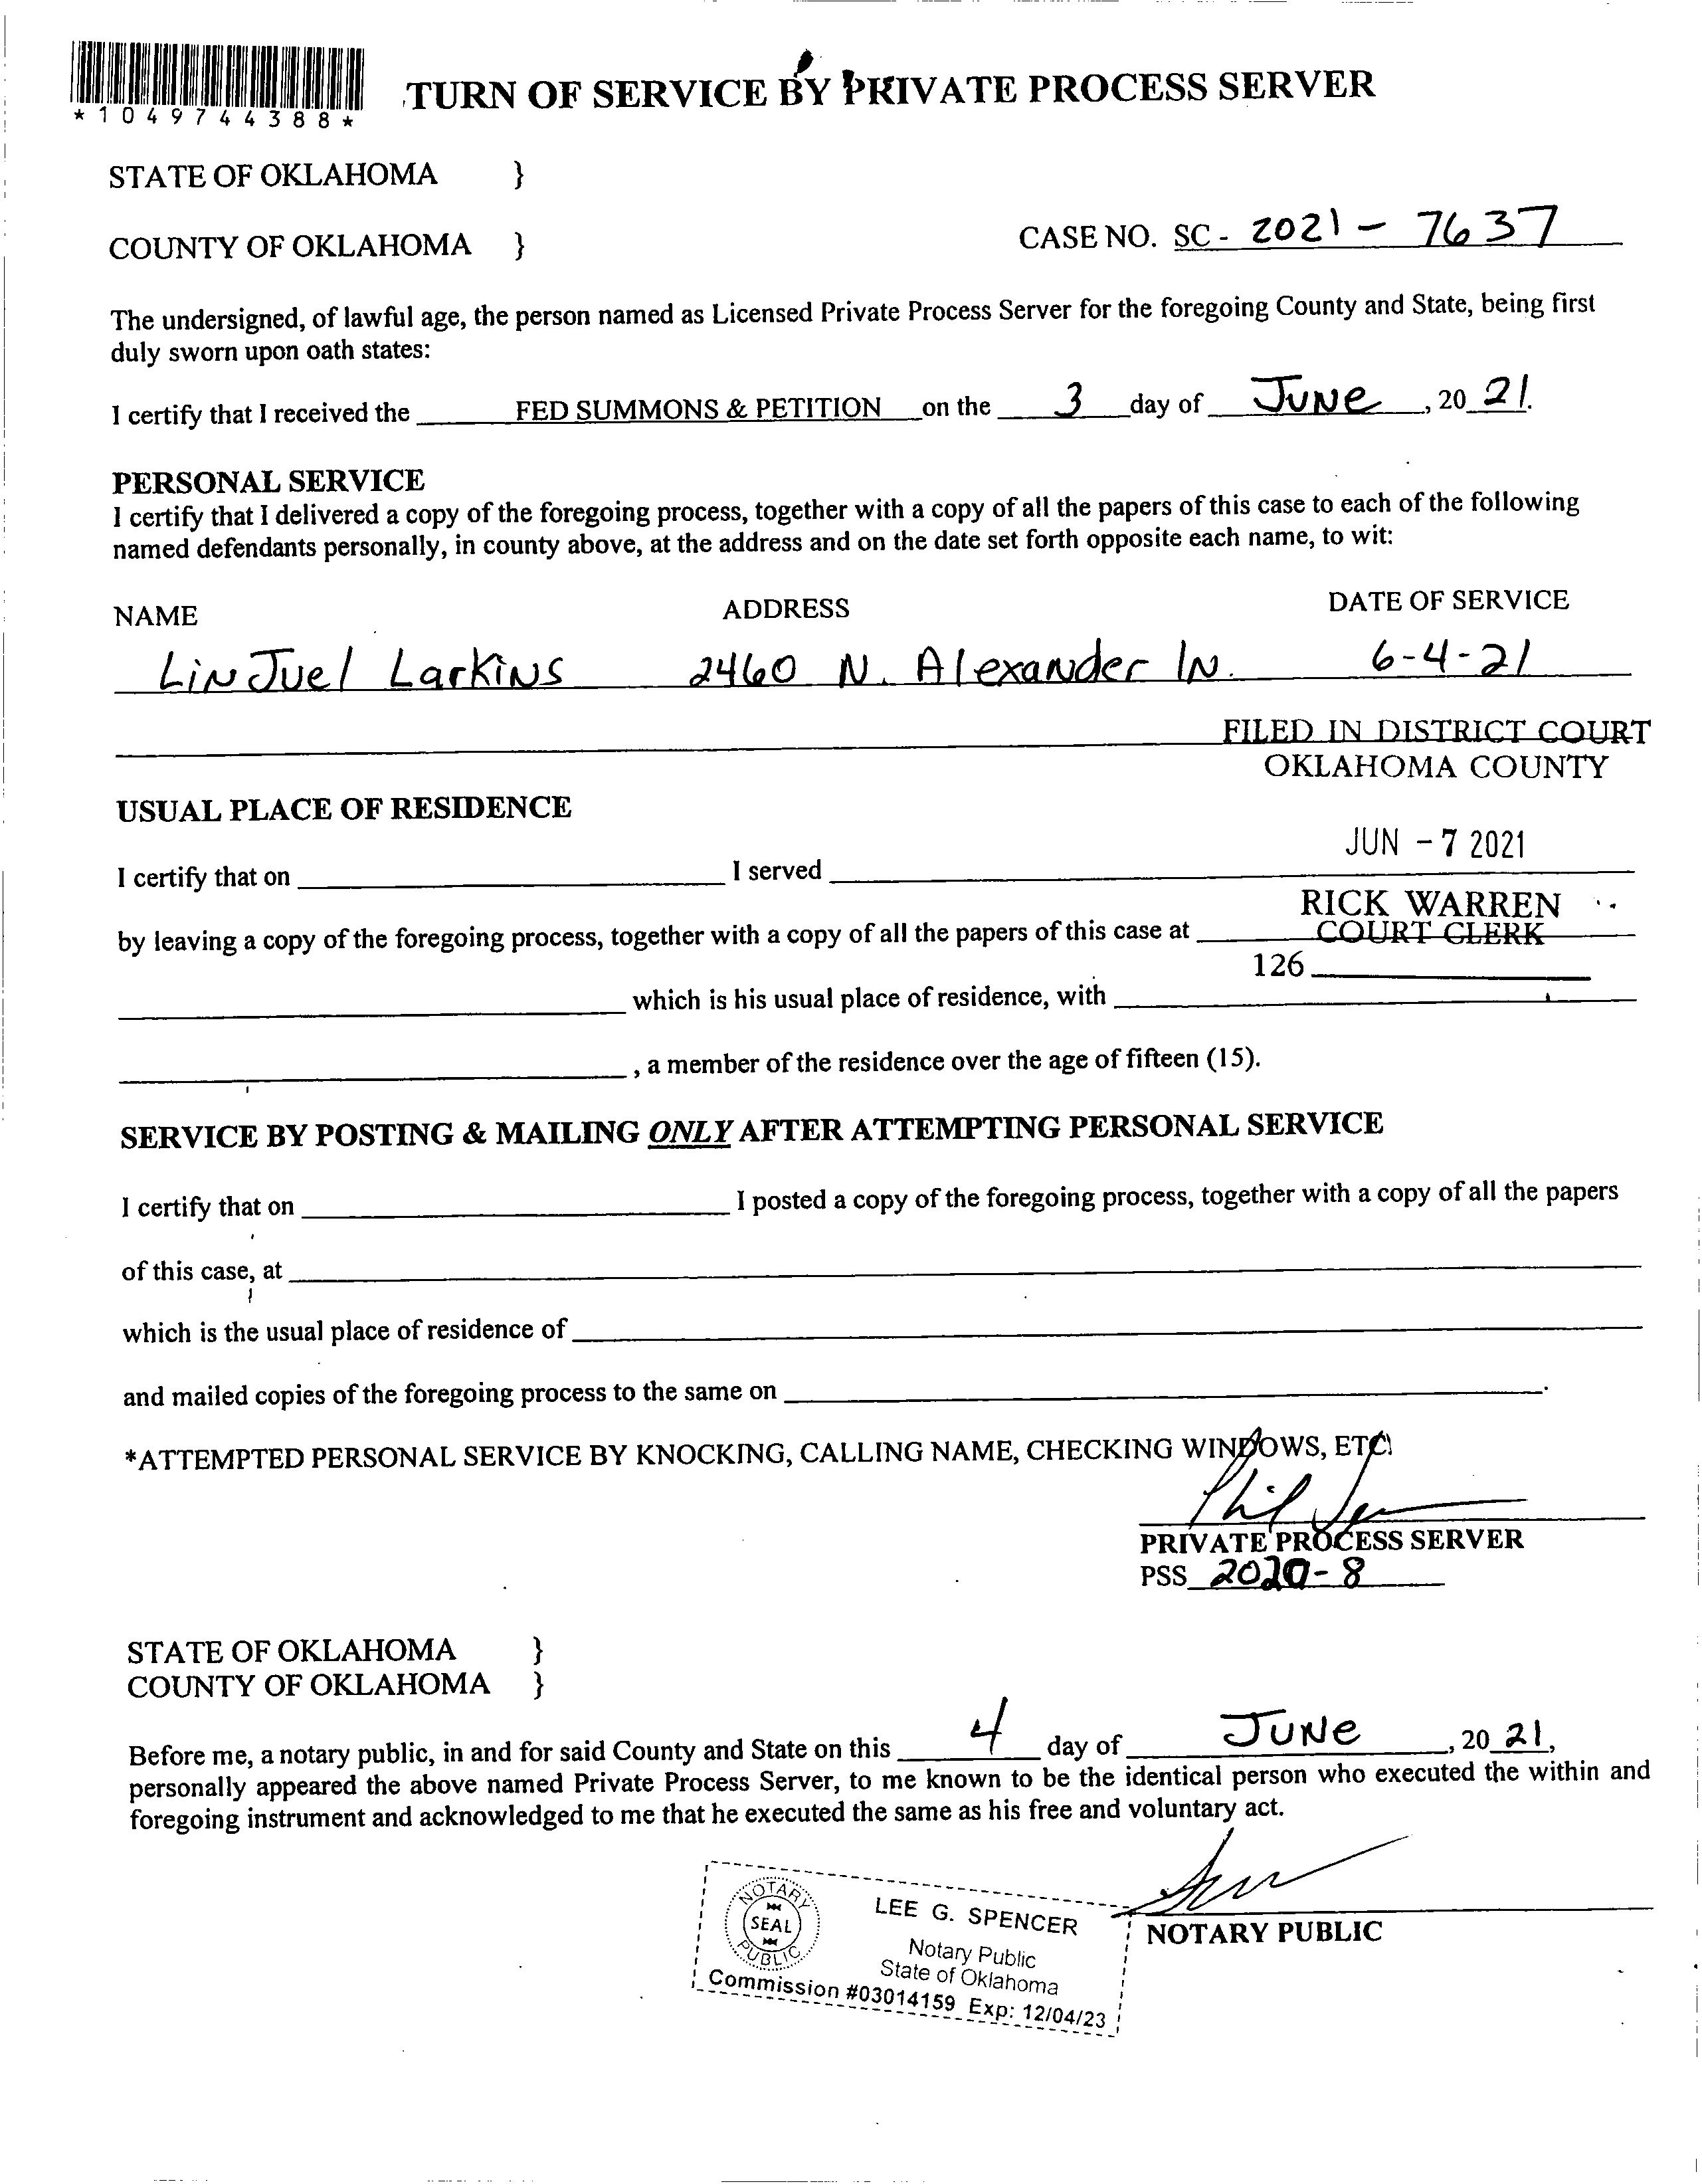 *1049744388*
TURN OF SERVICE BY PRIVATE PROCESS SERVER
STATE OF OKLAHOMA }
COUNTY OF OKLAHOMA } CASE NO. SC - 2021 - 7637
The undersigned, of lawful age, the person named as Licensed Private Process Server for the foregoing County and State, being first
duly sworn upon oath states:
I certify that I received the FED SUMMONS & PETITION on the 3 day of June, 20 21.
PERSONAL SERVICE
I certify that I delivered a copy of the foregoing process, together with a copy of all the papers of this case to each of the following
named defendants personally, in county above, at the address and on the date set forth opposite each name, to wit:
NAME ADDRESS DATE OF SERVICE
LiN Juel LarkiNs 2460 N. Alexander lN. 6-4-21
FILED IN DISTRICT COURT
OKLAHOMA COUNTY
USUAL PLACE OF RESIDENCE
JUN - 7 2021
I certify that on I served
RICK WARREN
by leaving a copy of the foregoing process, together with a copy of all the papers of this case at COURT CLERK
126
which is his usual place of residence, with
, a member of the residence over the age of fifteen (15).
SERVICE BY POSTING & MAILING ONLY AFTER ATTEMPTING PERSONAL SERVICE
I certify that on I posted a copy of the foregoing process, together with a copy of all the papers
of this case, at
which is the usual place of residence of
and mailed copies of the foregoing process to the same on .
*ATTEMPTED PERSONAL SERVICE BY KNOCKING, CALLING NAME, CHECKING WINDOWS, ETC
Phil
PRIVATE PROCESS SERVER
PSS 2020-8
STATE OF OKLAHOMA }
COUNTY OF OKLAHOMA }
Before me, a notary public, in and for said County and State on this 4 day of June, 20 21,
personally appeared the above named Private Process Server, to me known to be the identical person who executed the within and
foregoing instrument and acknowledged to me that he executed the same as his free and voluntary act.
NOTARY PUBLIC
NOTARY
SEAL
PUBLIC
LEE G. SPENCER
Notary Public
State of Oklahoma
Commission #03014159 Exp: 12/04/23